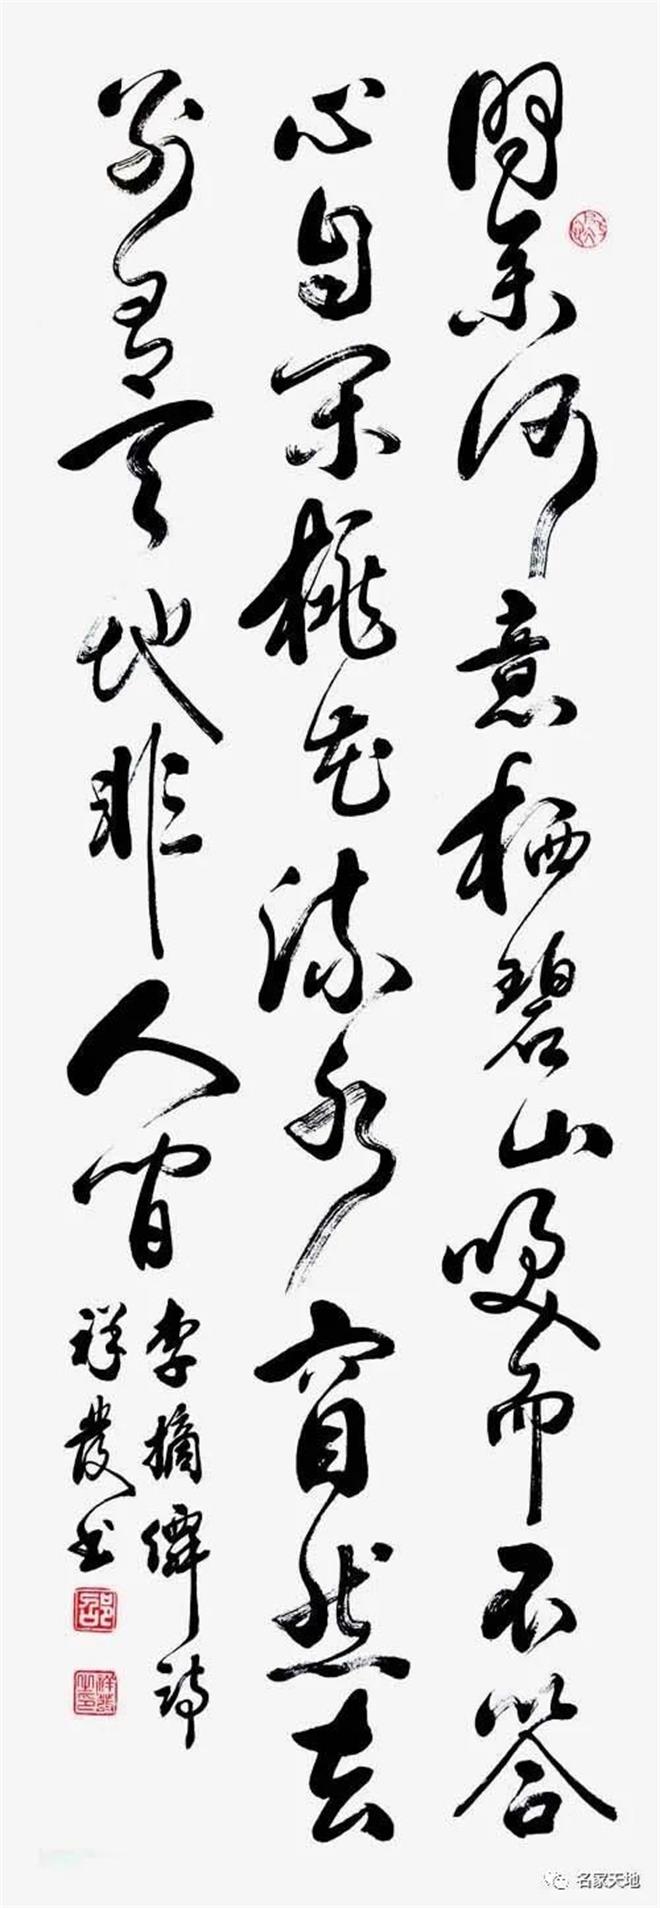 問余何意栖碧山咲而不答
心自閑桃花流水窅然去
別有天地非人間
李摘僊詩
祥發书
邵
名家天地